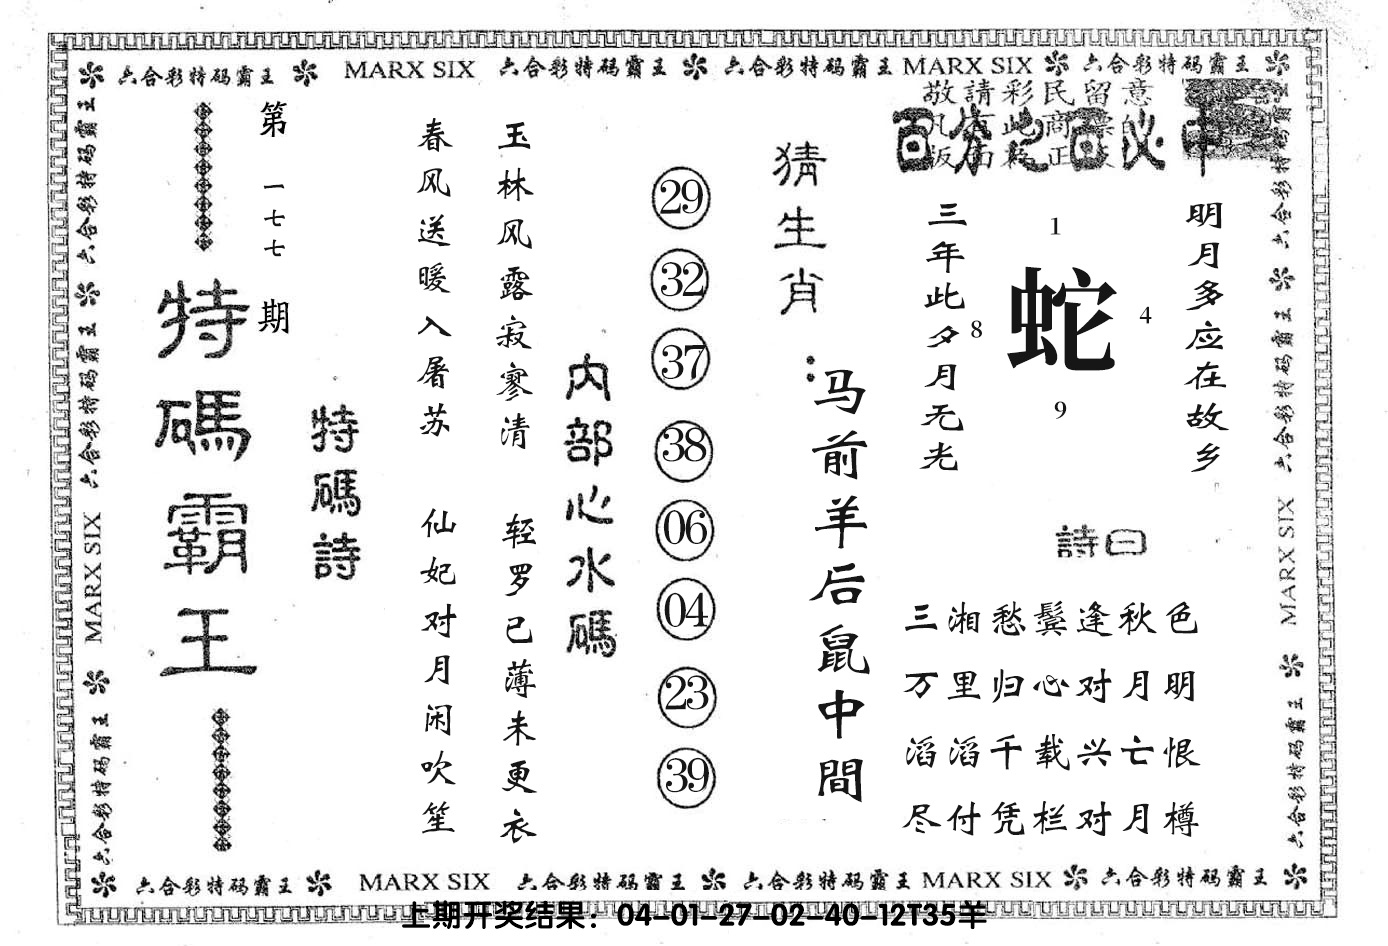 六合彩特码霸王 MARX SIX 六合彩特码霸王 六合彩特码霸王 MARX SIX 六合彩特码霸王
敬請彩民留意
百分之百必中
明月多应在故乡
三年此夕月无光
1
8
蛇
4
9
詩曰
三湘愁鬓逢秋色
万里归心对月明
滔滔千载兴亡恨
尽付凭栏对月樽
猜生肖：
马前羊后鼠中間
29
32
37
38
06
04
23
39
内部心水碼
玉林风露寂寥清
轻罗已薄未更衣
春风送暖入屠苏
仙妃对月闲吹笙
特碼詩
第一七七期
特碼霸王
六合彩特码霸王 六合彩特码霸王 六合彩特码霸王 MARX SIX 六合彩特码霸王
六合彩特码霸王 六合彩特码霸王 MARX SIX 六合彩特码霸王
六合彩特码霸王 MARX SIX 六合彩特码霸王 六合彩特码霸王 MARX SIX 六合彩特码霸王
上期开奖结果：04-01-27-02-40-12T35羊